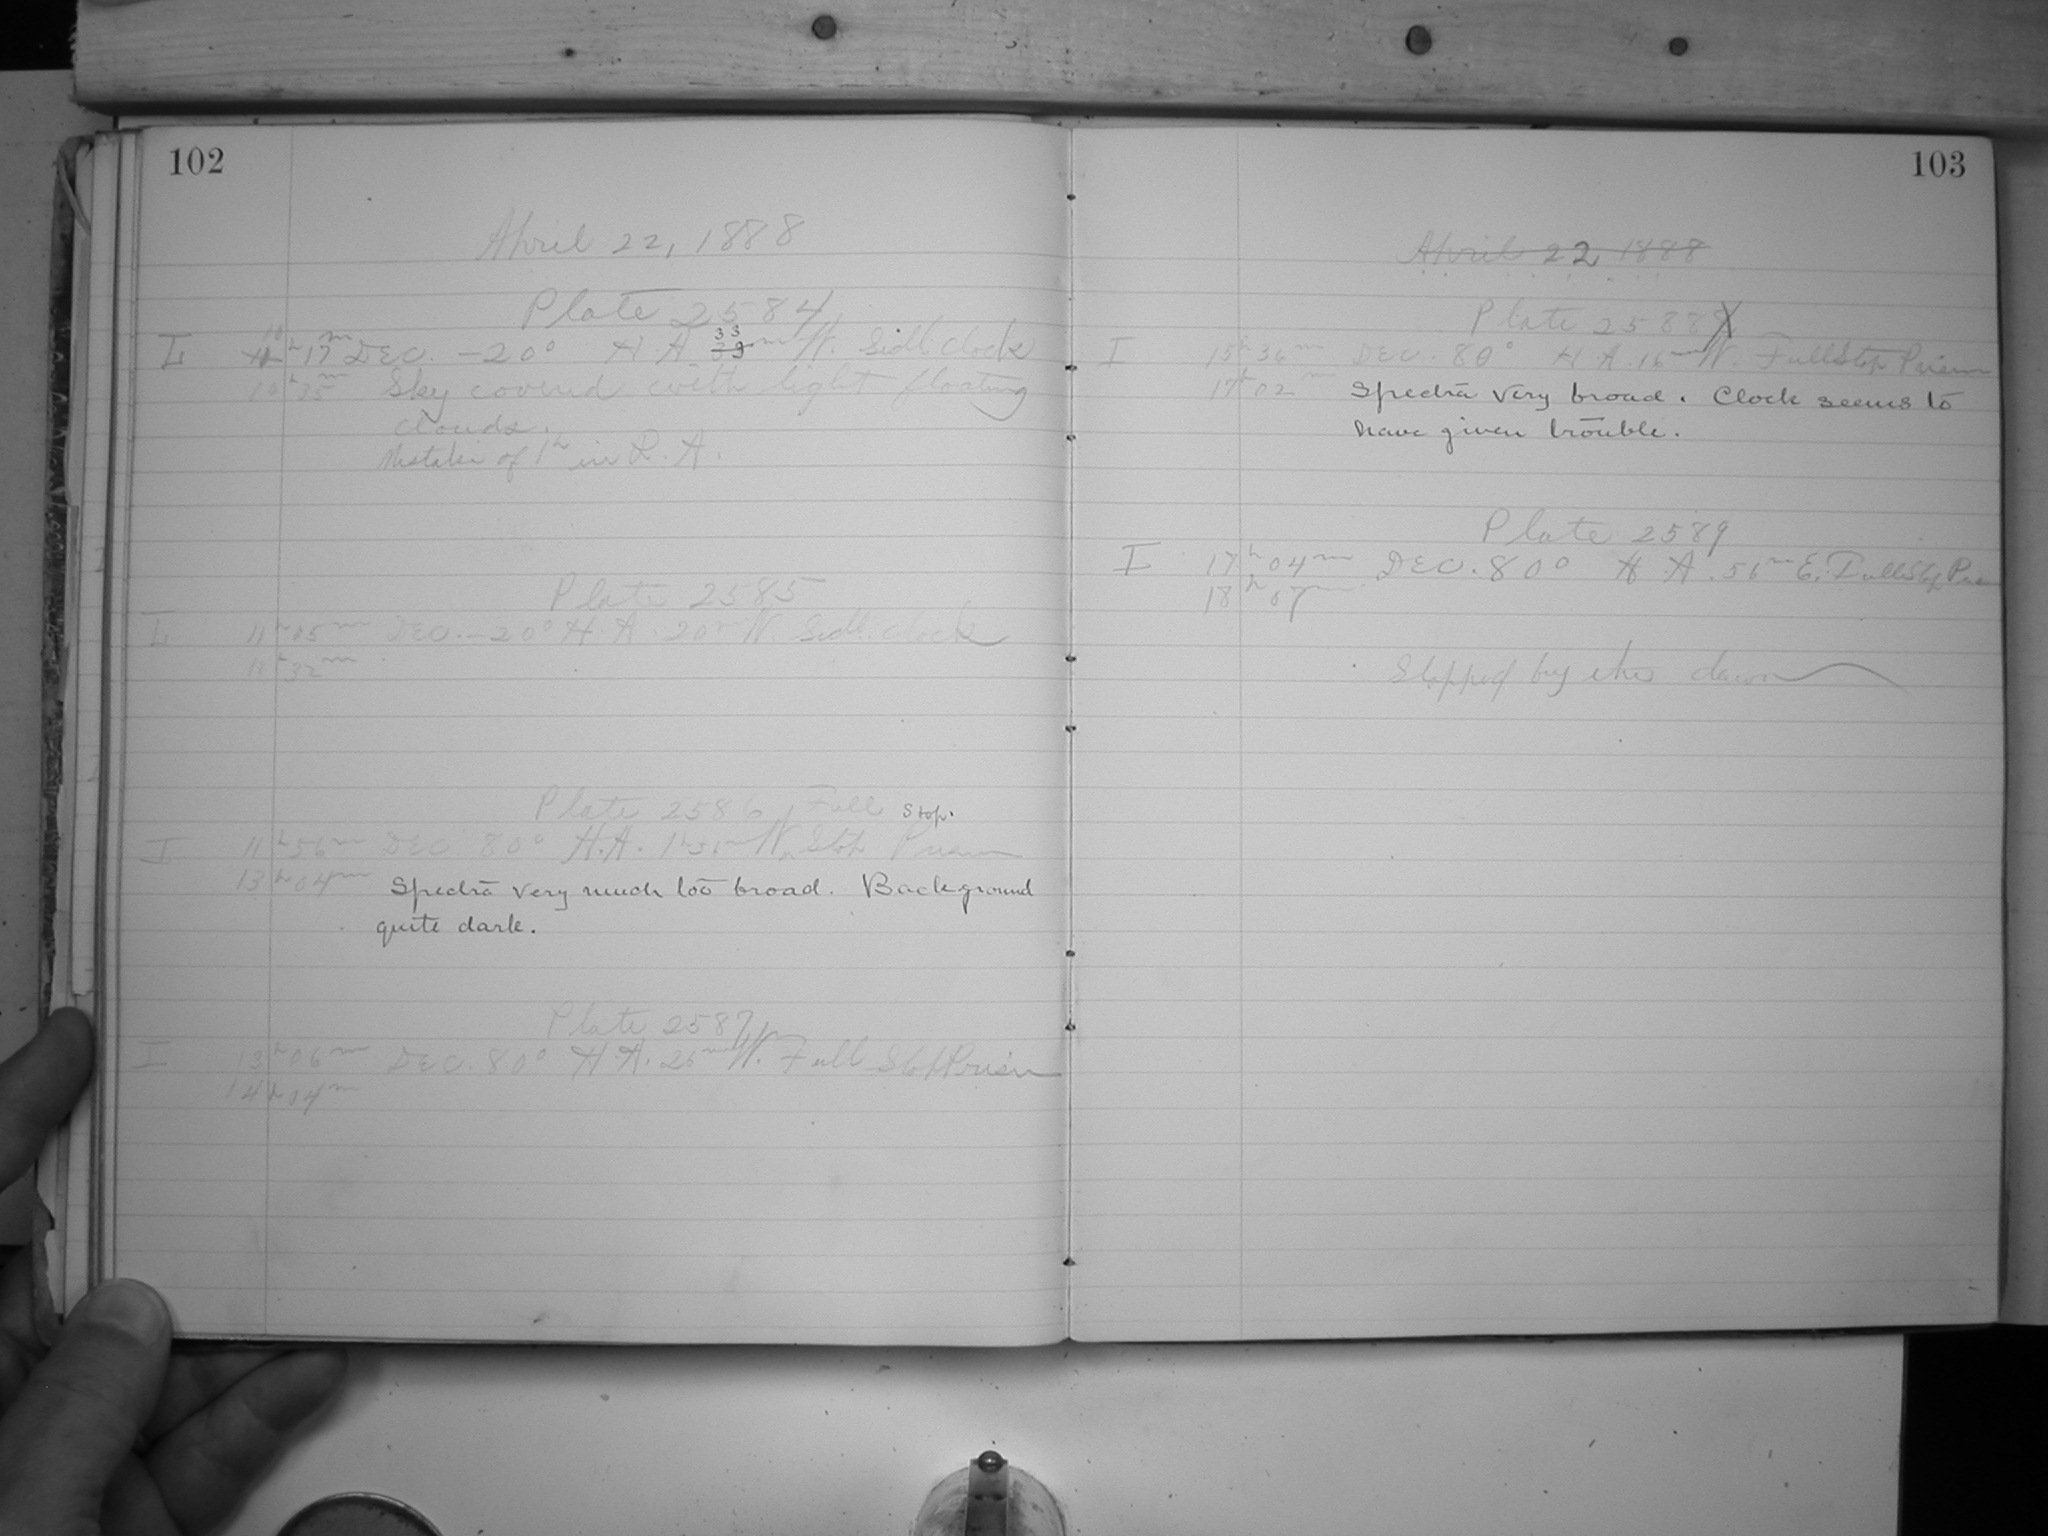 102
April 22, 1888
Plate 2584
I 10 11h 17m Dec. -20° H.A 33 39m W. Sidl. clock
10h 35m Sky covered with light floating
clouds.
Mistake of 1h in R.A.
Plate 2585
I 11h 05m Dec. -20° H.A. 20m W. Sidl. clock
11h 32m
Plate 2586 Full Stop.
I 11h 56m Dec 80° H.A. 1h W. Stop Prism
13h 04m Spectra very much too broad. Background
quite dark.
Plate 2587
I 13h 06m Dec. 80° H.A. 26m W. Full Stop Prism
14h 04m
103
April 22 1888
Plate 2588
I 15h 36m Dec. 80° H.A. 16m W. Full Stop Prism
17h 02m Spectra very broad. Clock seems to
have given trouble.
Plate 2589
I 17h 04m Dec. 80° H.A. 56m E. Full Stop Prism
18h 07m
Stopped by the dawn